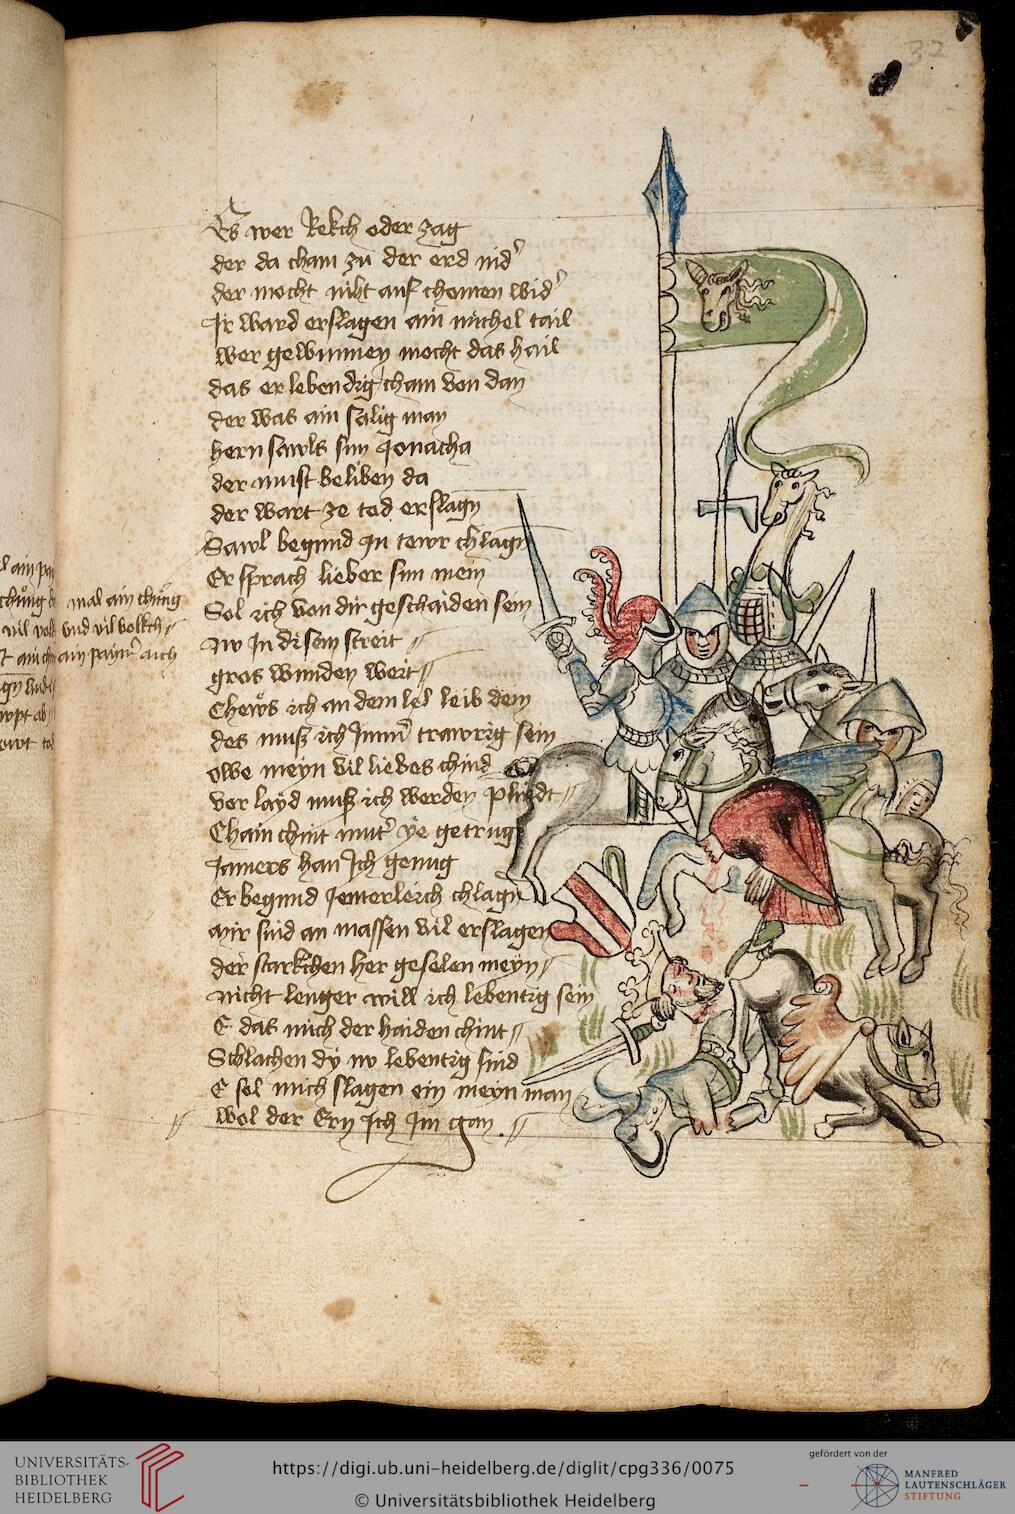 32
Es wer Rekch oder zag
der da cham zu der erd nid'
der mocht niht auf chomen wid'
Ir ward erslagen ain michel tail
wer gewinnen mocht das hail
das er lebendig cham von dan
der was ain sälig man
hern sawls sun Jonacha
der must beliben da
der wart ze tod erslagn
Sawl begund In tewr chlagn
Er sprach lieber sun mein
Sol ich von dir geschaiden sein
nw In disem streit
gros wunden weit
an leib dem
des muß ich Imm' trawrig sein
owe meyn vil liebes chind
vor layd muß ich werden plindt
Chain chint mut' ye getrug
Jamers han Ich genug
Er begund Jemerleich chlagn
mir sind an massen vil erslagen
der starkchen her geselen meyn
nicht lenger will ich lebentig sein
E das mich der haiden chint
Schlachen dy nw lebentig sind
E sol mich slagen ein meyn man
wol der Ern Ich Im gan
mal ain chung
vnd vil volkch
ain auch
UNIVERSITÄTS-
BIBLIOTHEK
HEIDELBERG
https://digi.ub.uni-heidelberg.de/diglit/cpg336/0075
© Universitätsbibliothek Heidelberg
gefördert von der
MANFRED
LAUTENSCHLÄGER
STIFTUNG